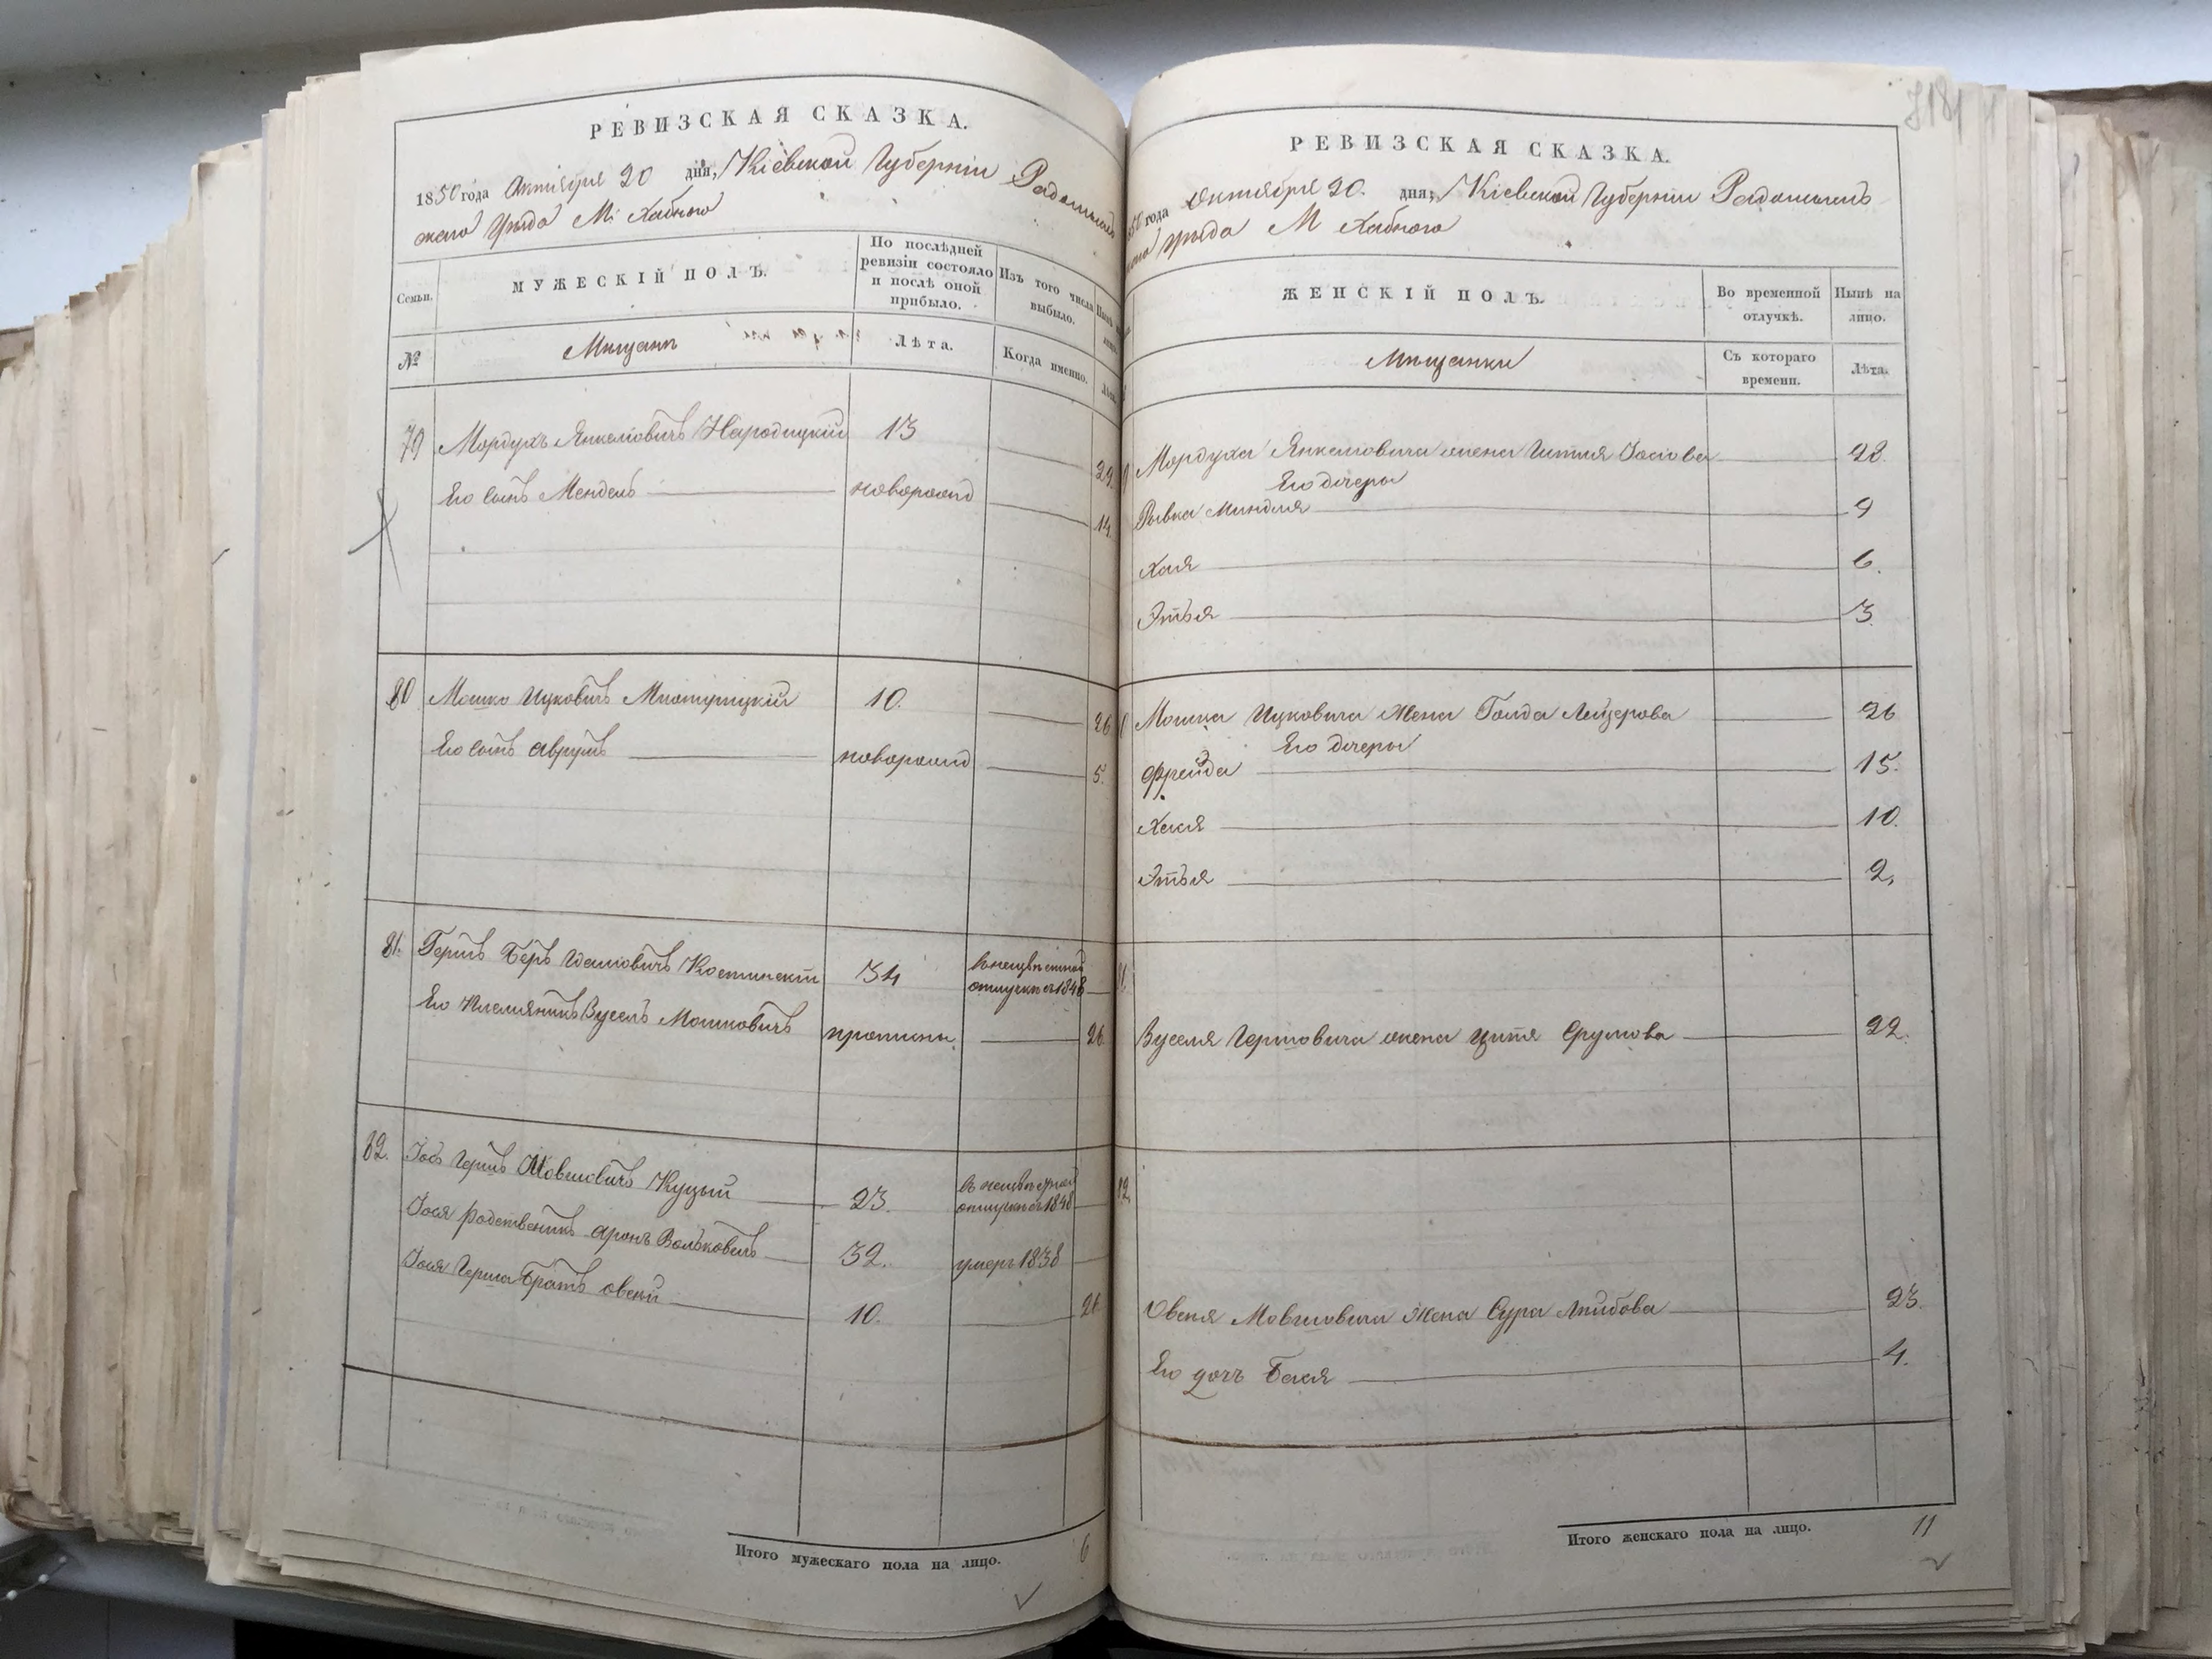 РЕВИЗСКАЯ СКАЗКА.
1850 года Октября 20 дня, Кіевской Губерніи Радомысль
скаго Уѣзда М. Хабного
Семьи.
МУЖЕСКІЙ ПОЛЪ.
По послѣдней ревизіи состояло и послѣ оной прибыло.
Изъ того числа выбыло.
№
Мѣщане
Лѣта.
Когда именно.
79 Мордухъ Янкелiовичъ Народицкій 13 29
Его сынъ Мендель новорожд 14
80 Мошко Ицковичъ 10. 26
Его сынъ Аврумъ новорожд 5.
81. Гершъ Беръ Костинскій 34 въ отлучкѣ съ 1848
Его племянникъ Вусель Мошковичъ 26
82. Іось Гершъ Мовшовичъ Куцый 23. въ отлучкѣ съ 1848
Іося родственникъ Аронъ Вольковичъ 32. умеръ 1838
Іося Герша братъ Овсей 10. 26
Итого мужескаго пола на лицо. 6
7181
РЕВИЗСКАЯ СКАЗКА.
50 года Октября 20. дня; Кіевской Губерніи Радомысль
Уѣзда М Хабного
ЖЕНСКІЙ ПОЛЪ.
Во временной отлучкѣ.
Нынѣ на лицо.
Мѣщанки
Съ котораго времени.
Лѣта.
Мордуха Янкелiовича жена Іосіова 28.
Его дочери
Рывка Миндля 9
Хая 6.
Этья 3.
Мошка Ицковича жена Голда Лейзерова 26
Его дочери
Фрейда 15.
Хася 10.
Этья 2.
81.
Вуселя Гершовича жена Цитя Срулова 22.
82.
Овсея Мовшовича жена Сура Лейбова 23.
Его дочь Бася 4.
Итого женскаго пола на лицо. 11